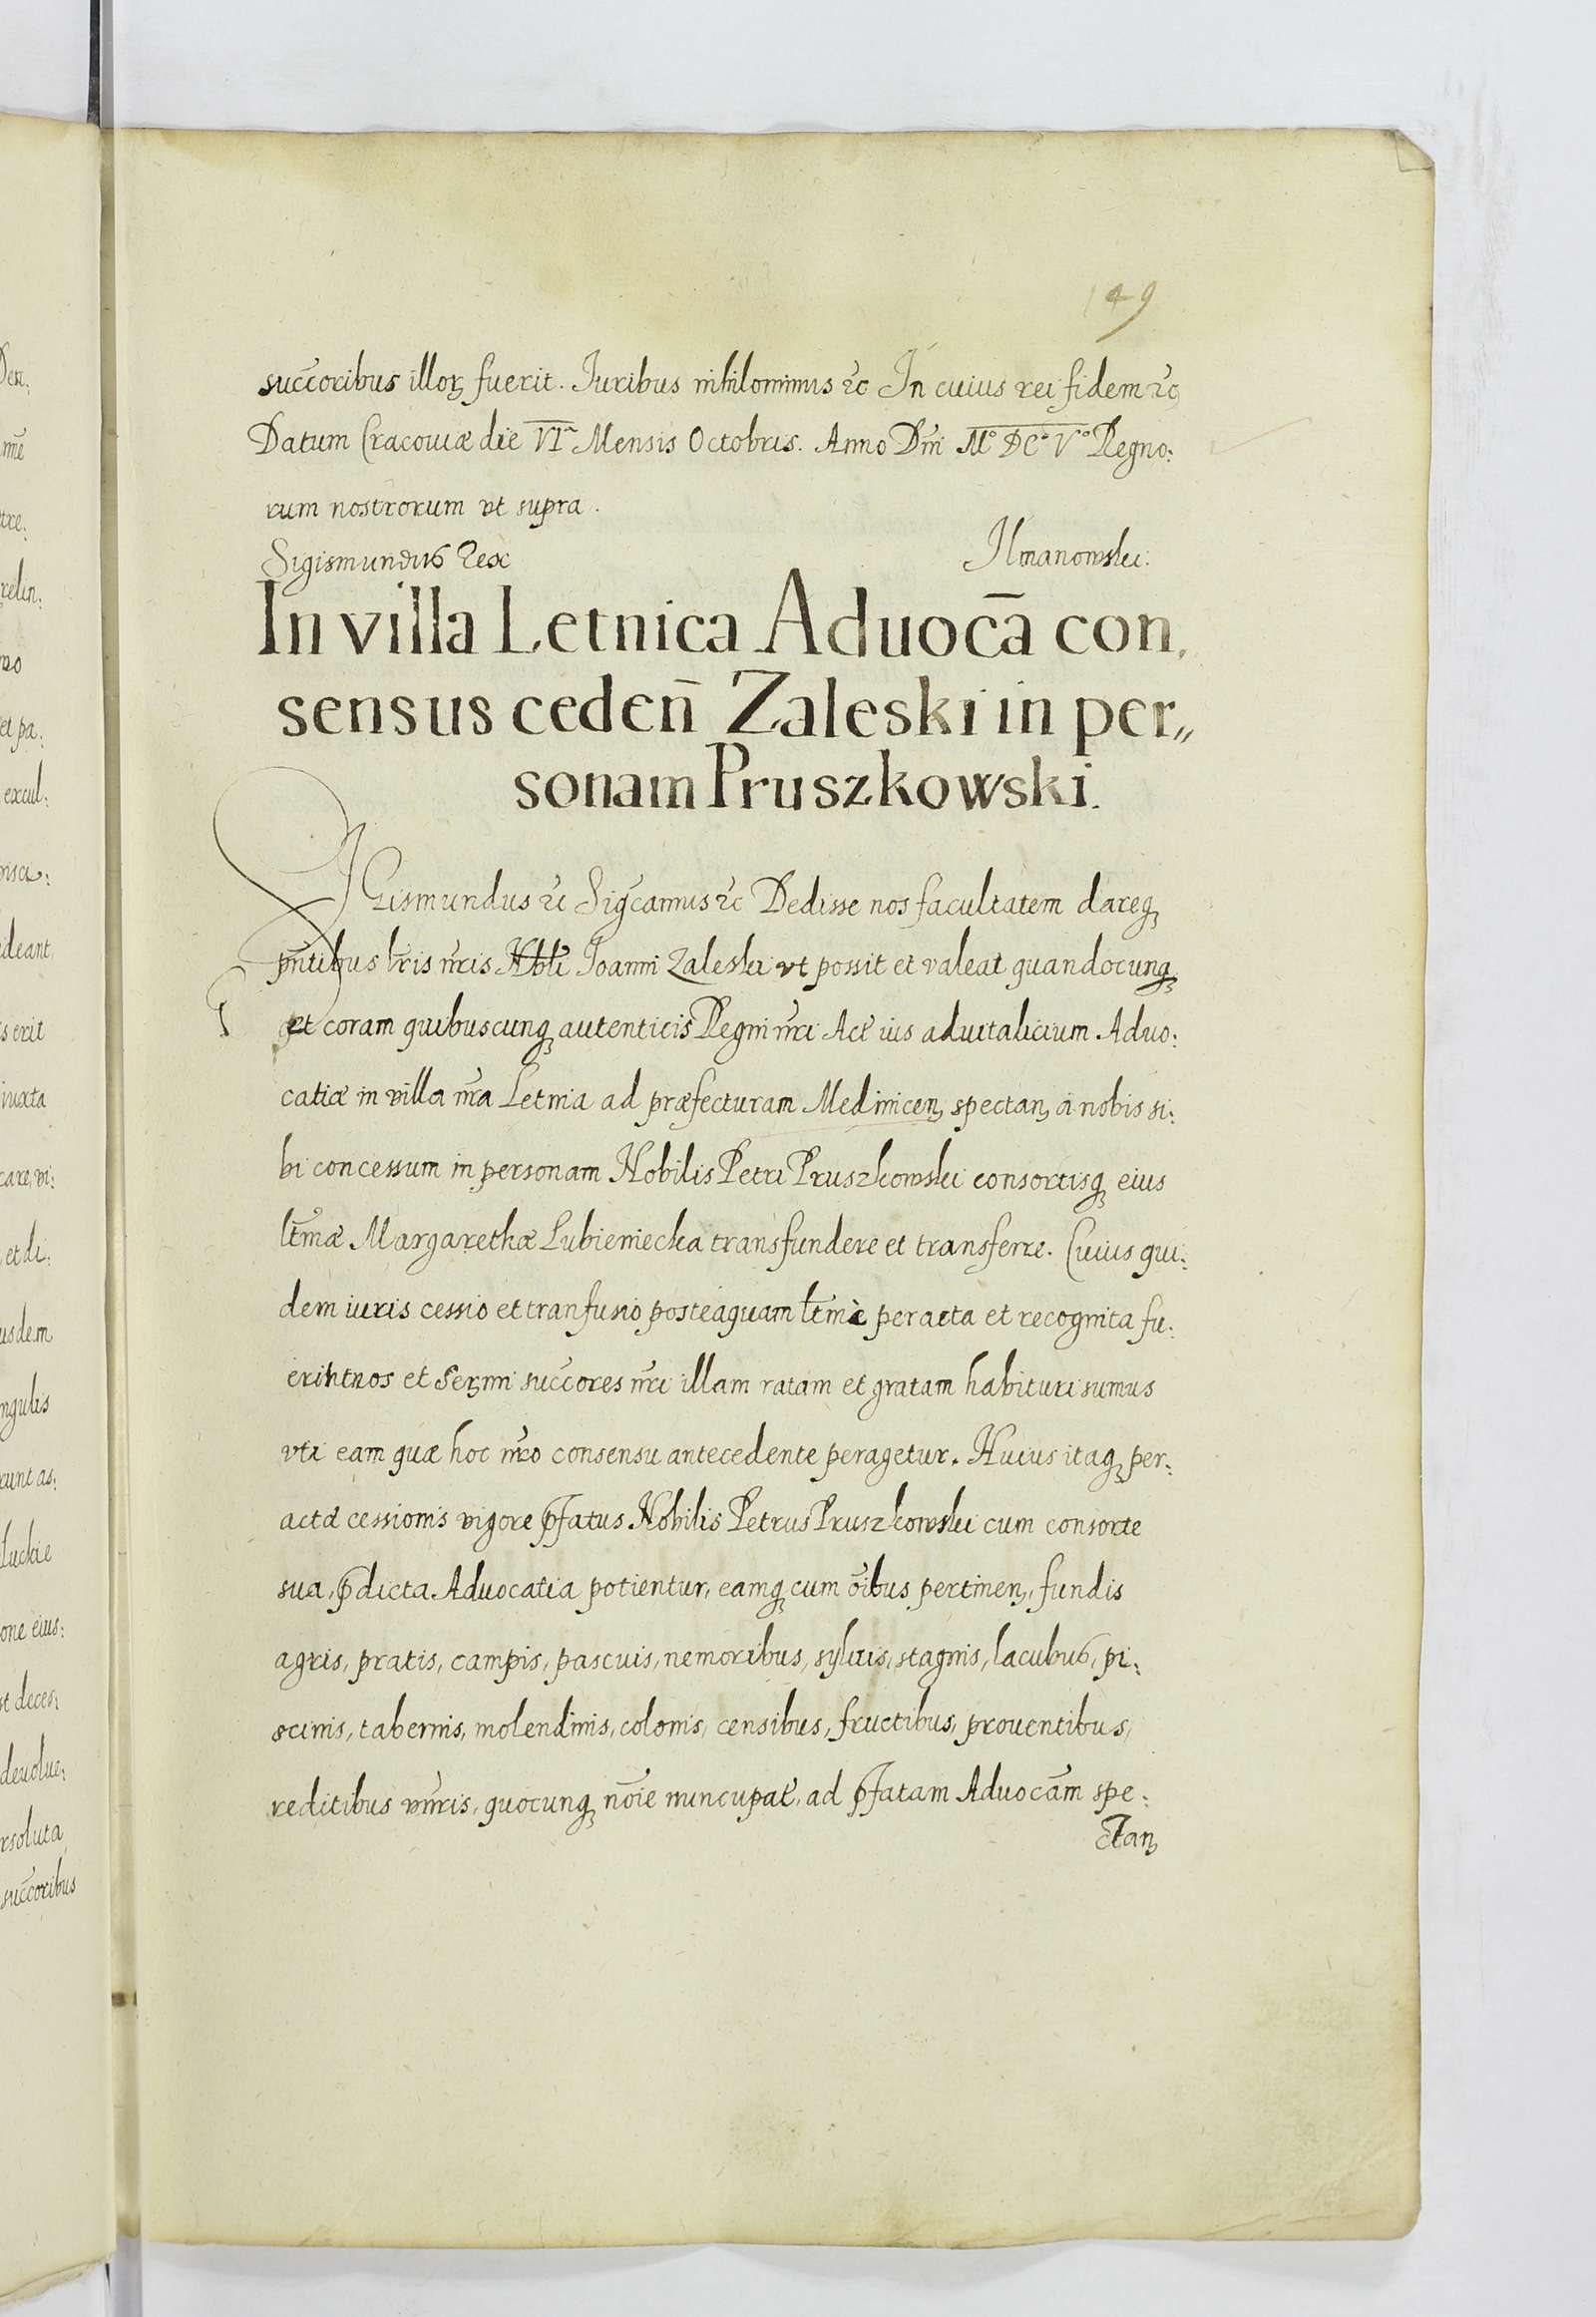 149
succ̄oribus illoꝝ fuerit. Iuribus nihilominus ꝛc In cuius rei fidem ꝛc
Datum Cracouiæ die VIᵃ Mensis Octobris. Anno Dni̅ Mº DCº Vº Regno:
rum nostrorum vt supra.
Sigismundus Rex
Ilmanowski.
In villa Letnica Aduocā con,
sensus ceden̄ Zaleski in per,,
sonam Pruszkowski.
SIGismundus ꝛc Sigc̄amus ꝛc Dedisse nos facultatem dareq̨
pn̄tibus lr̄is nr̄is Nbli̅ Ioanni Zaleski vt possit et valeat quandocunq̨
et coram quibuscunq̨ autenticis Regni nr̄i Act̄ ius aduitalicium Aduo:
catiæ in villa nr̄a Letnia ad præfecturam Medinicen̨ spectan̨ a nobis si:
bi concessum in personam Nobilis Petri Pruszkowski consortisq̨ eius
ltm̄æ Margarethæ Lubieniecka transfundere et transferre. Cuius qui:
dem iuris cessio et tranfusio posteaquam ltm̄e peracta et recognita fu:
erint nos et Serm̄i succ̄ores nr̄i illam ratam et gratam habituri sumus
vti eam quæ hoc nr̄o consensu antecedente peragetur. Huius itaq̨ per:
actæ cessionis vigore p̄fatus Nobilis Petrus Pruszkowski cum consorte
sua, p̄dicta Aduocatia potientur, eamq̨ cum oībus pertinen̨, fundis
agris, pratis, campis, pascuis, nemoribus, syluis, stagnis, lacubus, pi:
scinis, tabernis, molendinis, colonis, censibus, fructibus, prouentibus,
reditibus vnīuris, quocunq̨ noīe nuncupat̄, ad p̄fatam Aduocām spe:
ctan̨